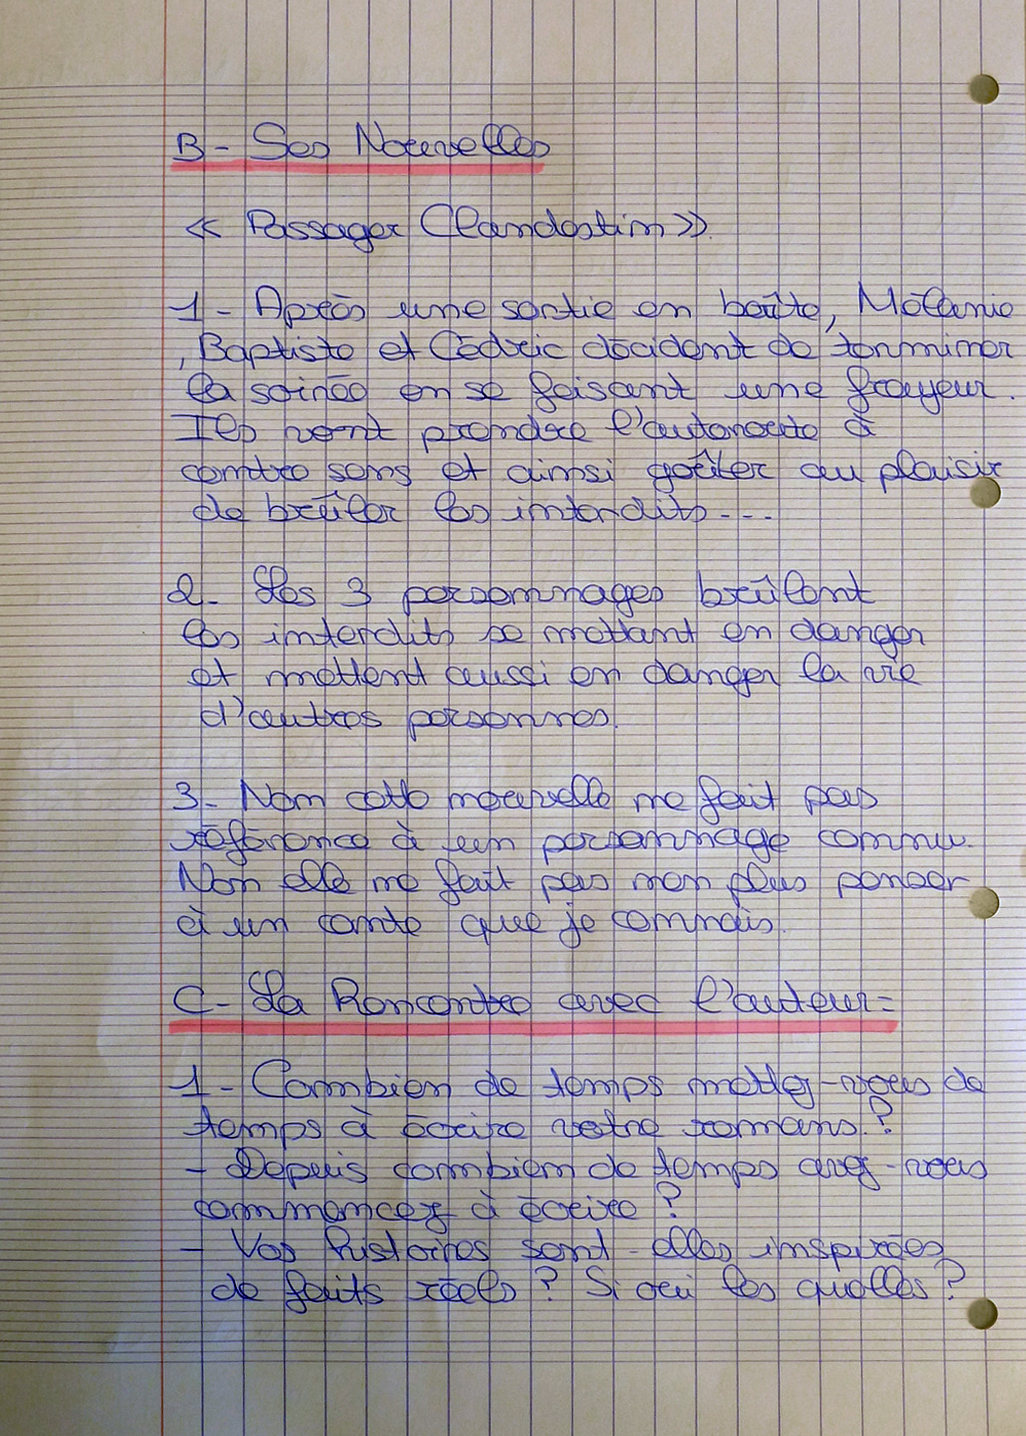 B- Ses Nouvelles
« Passager Clandestin ».
1- Après une sortie en boîte, Mélanie
, Baptiste et Cédric décident de tonminer
la soirée en se faisant une frayeur.
Ils vont prendre l'autoroute à
contre sens et ainsi goûter au plaisir
de brûler les interdits...
2- Les 3 personnages brûlent
les interdits se mettant en danger
et mettent aussi en danger la vie
d'autres personnes.
3- Non cette nouvelle ne fait pas
référence à un personnage connu.
Non elle ne fait pas non plus penser
à un conte que je connais.
C- La Rencontre avec l'auteur=
1- Combien de temps mettez-vous de
temps à écrire votre romans.?
- Depuis combien de temps avez-vous
commencez à écrire ?
- Vos histoires sont-elles inspirées
de faits réels ? Si oui les quelles ?